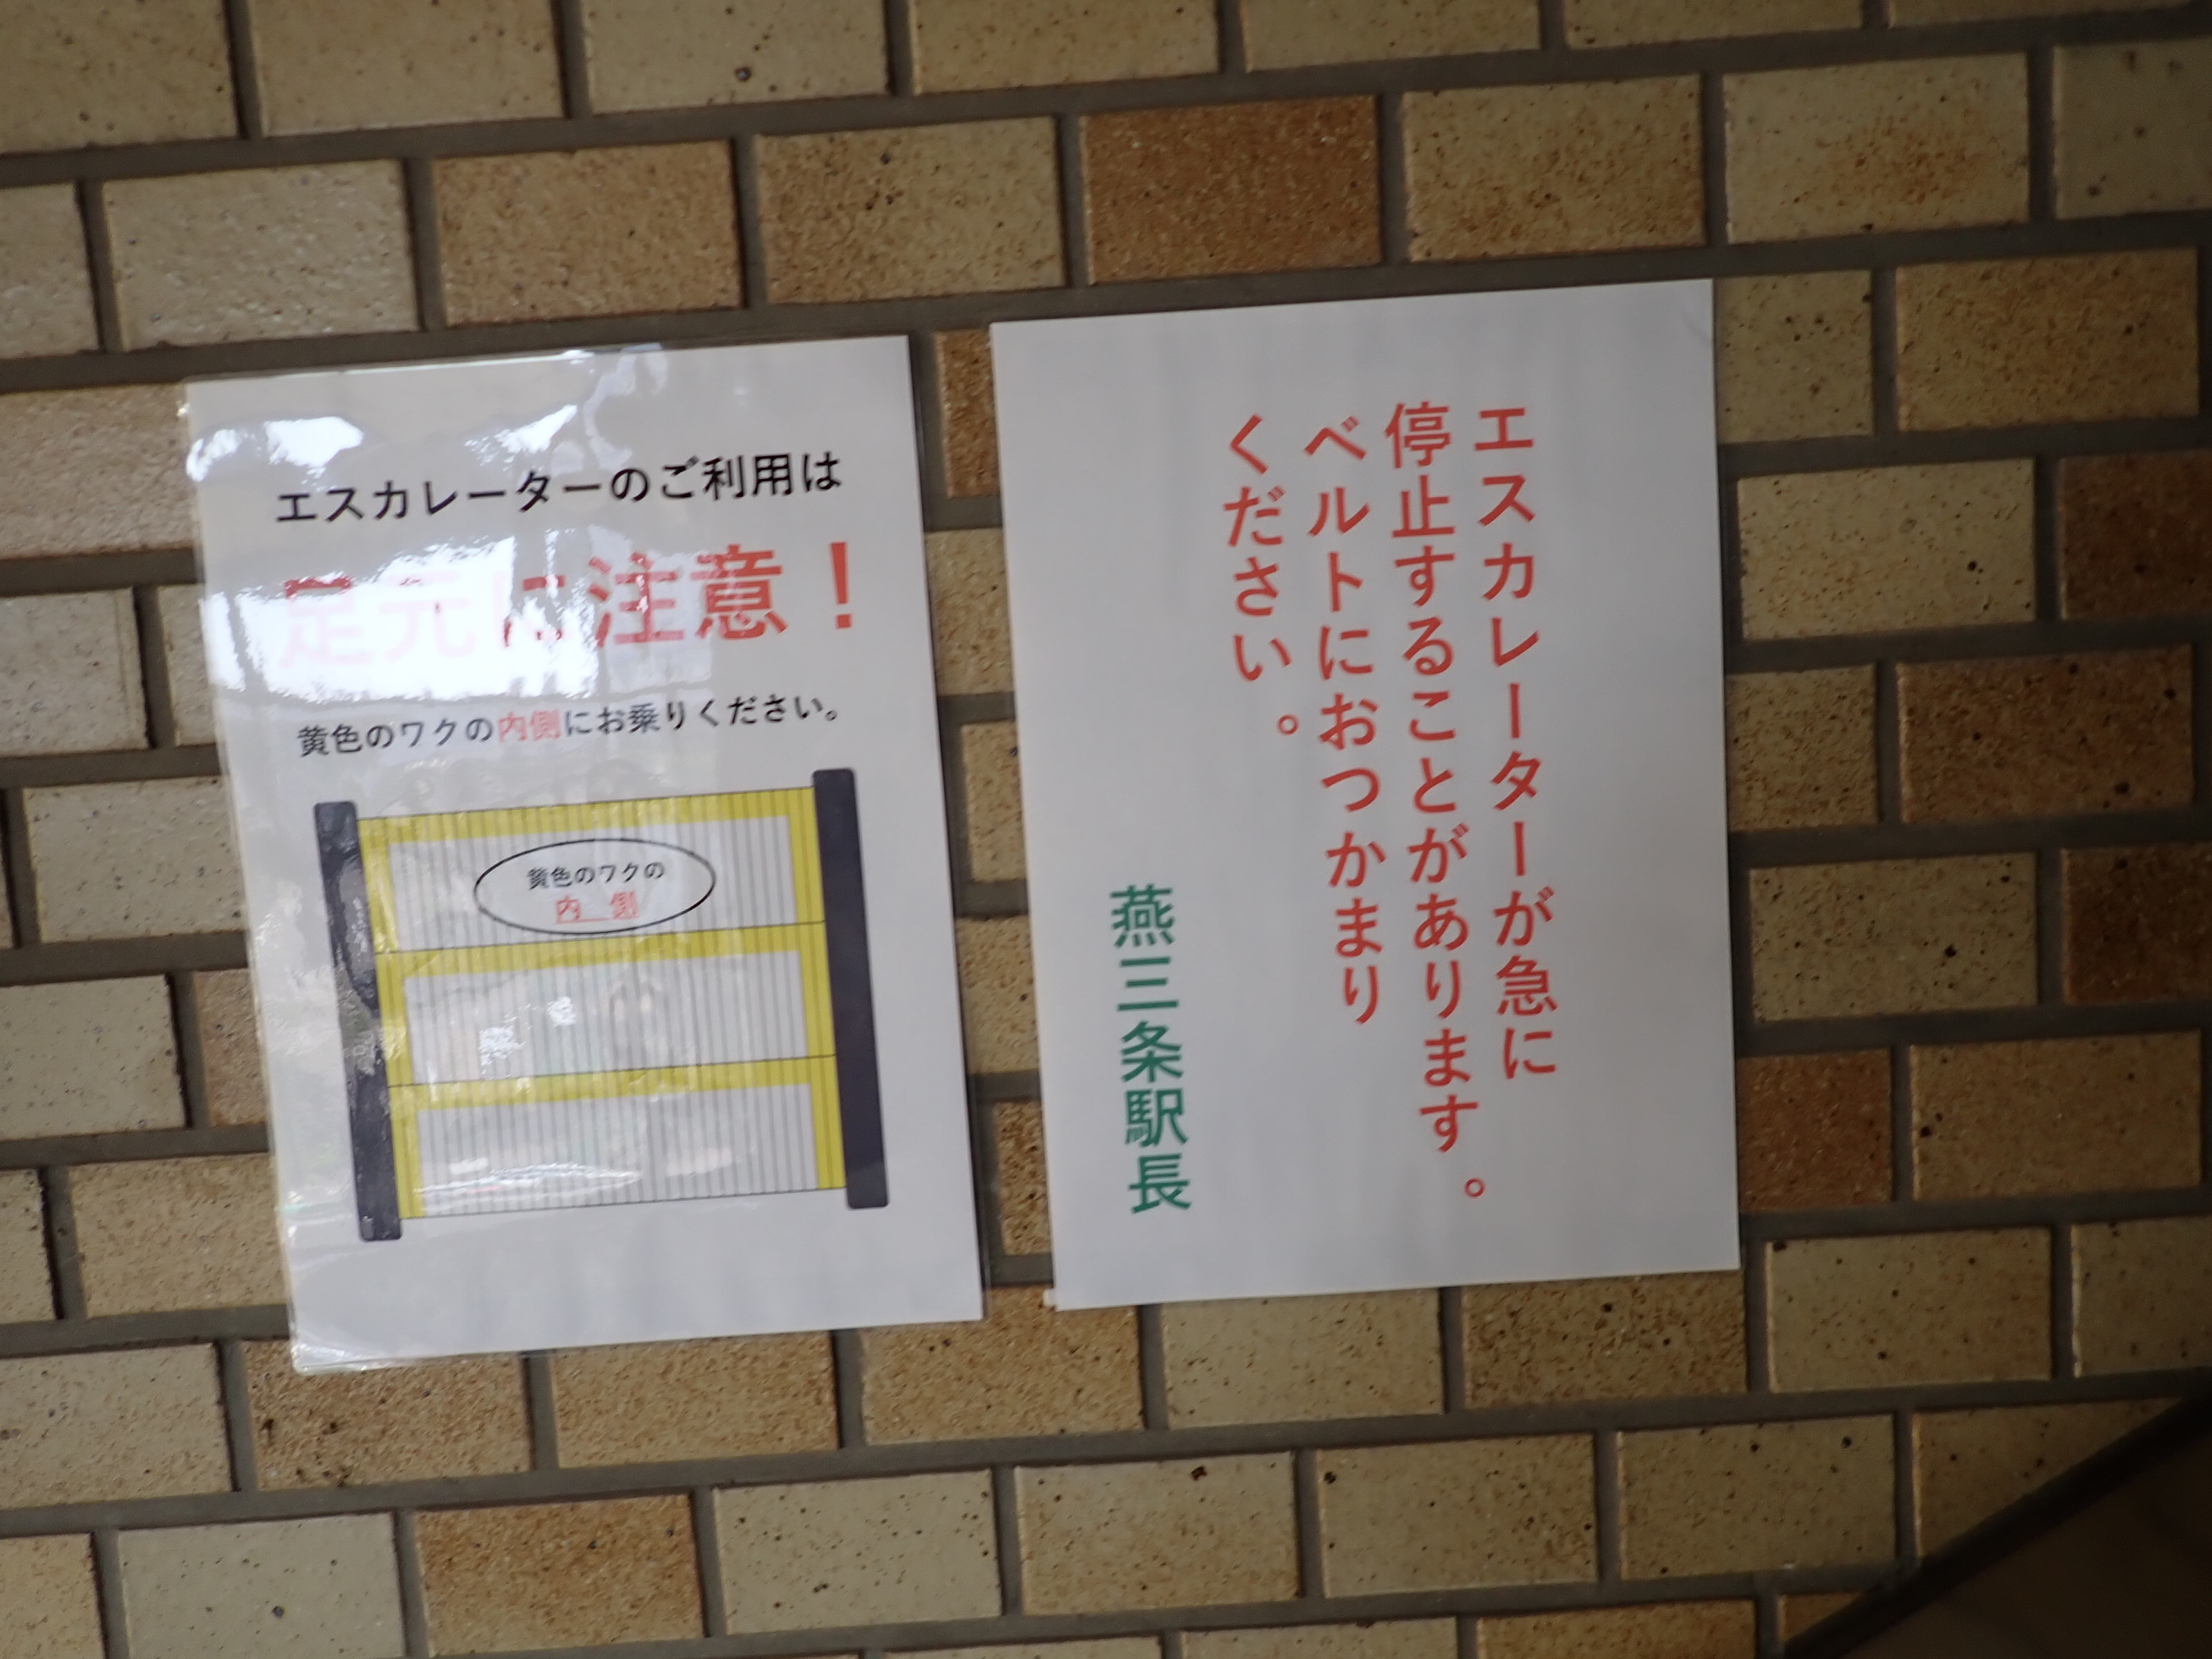 エスカレーターのご利用は
足元に注意！
黄色のワクの内側にお乗りください。
黄色のワクの
内　側
エスカレーターが急に
停止することがあります。
ベルトにおつかまり
ください。
燕三条駅長